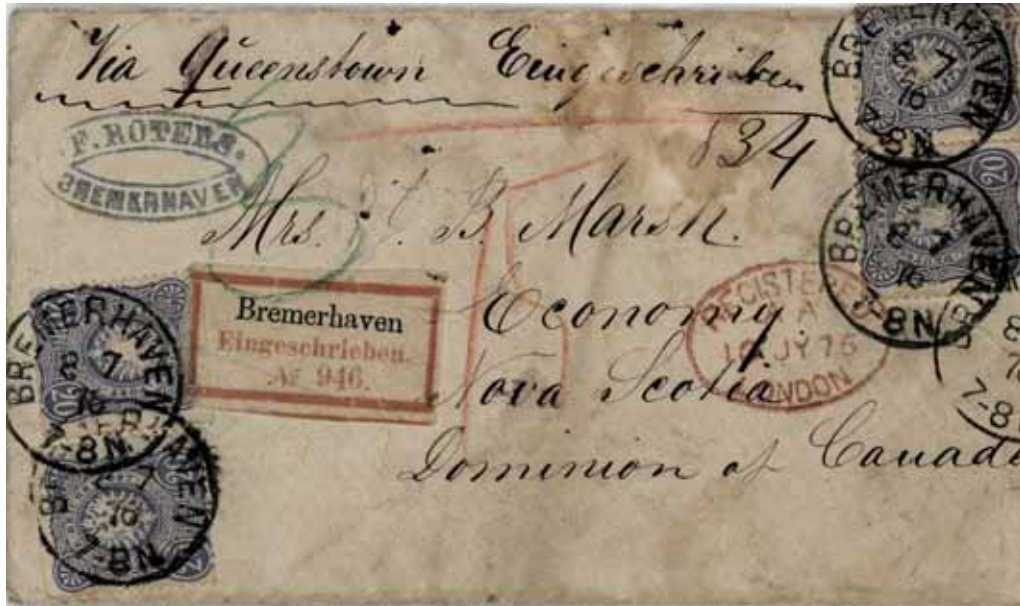 Via Queenstown Eingeschrieben
834
F. ROTERS.
BREMERHAVEN
Mrs. B. Marsh.
Economy.
Nova Scotia
Dominion of Canada
Bremerhaven
Eingeschrieben.
№ 946.
REGISTERED
A
JY 76
LONDON
BREMERHAVEN
8 7
76
7-8N
20
BREMERHAVEN
8 7
76
7-8N
20
BREMERHAVEN
8 7
76
7-8N
20
BREMERHAVEN
7
76
7-8N
7-8